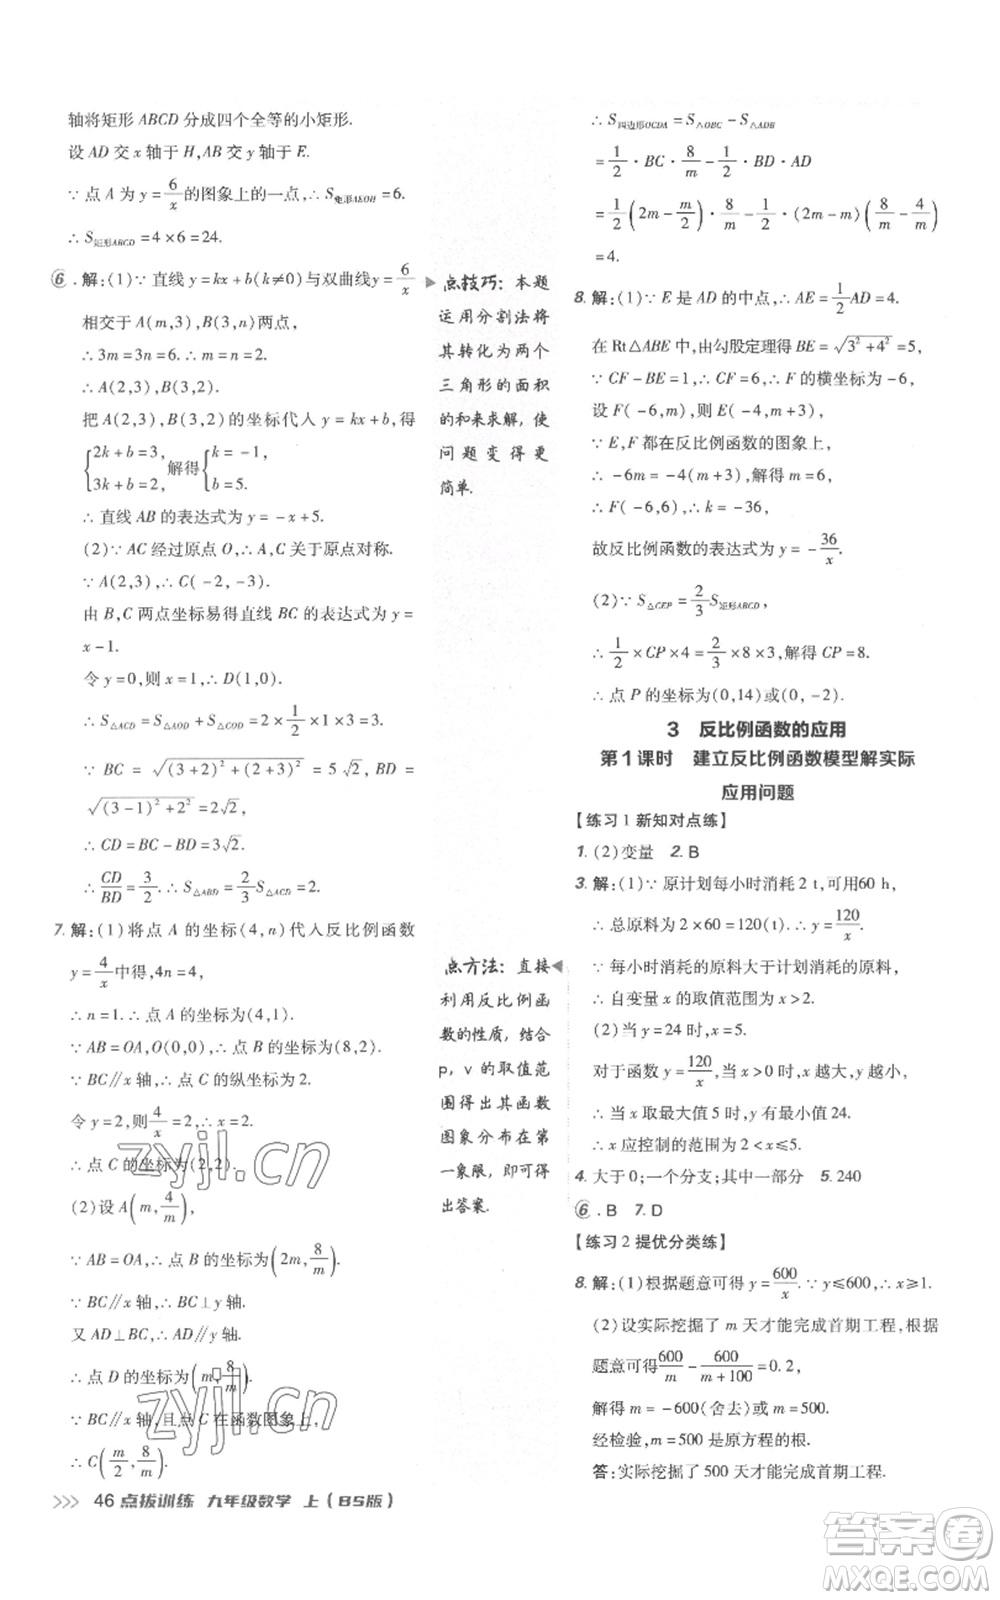 轴将矩形 ABCD 分成四个全等的小矩形.
设 AD 交 x 轴于 H,AB 交 y 轴于 E.
∵ 点 A 为 y = 6/x 的图象上的一点,∴ S矩形AEOH = 6.
∴ S矩形ABCD = 4 × 6 = 24.
⑥. 解:(1)∵ 直线 y = kx + b(k≠0)与双曲线y = 6/x
相交于 A(m,3),B(3,n)两点,
∴ 3m = 3n = 6. ∴ m = n = 2.
∴ A(2,3),B(3,2).
把 A(2,3),B(3,2)的坐标代人 y = kx + b,得
{2k + b = 3, 3k + b = 2, 解得 {k = -1, b = 5.
∴ 直线 AB 的表达式为 y = -x + 5.
(2)∵ AC 经过原点 O,∴ A,C 关于原点对称.
∵ A(2,3),∴ C(-2,-3).
由 B,C 两点坐标易得直线 BC 的表达式为 y =
x - 1.
令 y = 0,则 x = 1,∴ D(1,0).
∴ S△ACD = S△AOD + S△COD = 2 × 1/2 × 1 × 3 = 3.
∵ BC = √((3+2)²+(2+3)²) = 5√2, BD =
√((3-1)²+2²) = 2√2,
∴ CD = BC - BD = 3√2.
∴ CD/BD = 3/2. ∴ S△ABD = 2/3 S△ACD = 2.
7. 解:(1)将点 A 的坐标(4,n)代人反比例函数
y = 4/x 中得,4n = 4,
∴ n = 1. ∴ 点 A 的坐标为(4,1).
∵ AB = OA,O(0,0),∴ 点 B 的坐标为(8,2).
∵ BC∥x 轴,∴ 点 C 的纵坐标为 2.
令 y = 2,则 4/x = 2,∴ x = 2.
∴ 点 C 的坐标为(2,2).
(2)设 A(m, 4/m),
∵ AB = OA,∴ 点 B 的坐标为(2m, 8/m).
∵ BC∥x 轴,∴ BC⊥y 轴.
又 AD⊥BC,∴ AD∥y 轴.
∴ 点 D 的坐标为(m, 8/m).
∵ BC∥x 轴,且点 C 在函数图象上,
∴ C(m/2, 8/m).
点技巧: 本题
运用分割法将
其转化为两个
三角形的面积
的和来求解, 使
问题变得更
简单.
点方法: 直接
利用反比例函
数的性质, 结合
p, v 的取值范
围得出其函数
图象分布在第
一象限, 即可得
出答案.
∴ S四边形OCDA = S△OBC - S△ADB
= 1/2 · BC · 8/m - 1/2 · BD · AD
= 1/2(2m - m/2) · 8/m - 1/2 · (2m - m)(8/m - 4/m)
= 4.
8. 解:(1)∵ E 是 AD 的中点,∴ AE = 1/2 AD = 4.
在 Rt△ABE 中,由勾股定理得 BE = √(3²+4²) = 5,
∵ CF - BE = 1,∴ CF = 6. ∴ F 的横坐标为 -6,
设 F(-6,m),则 E(-4,m+3),
∵ E,F 都在反比例函数的图象上,
∴ -6m = -4(m+3),解得 m = 6,
∴ F(-6,6),∴ k = -36,
故反比例函数的表达式为 y = -36/x.
(2)∵ S△CEP = 2/3 S矩形ABCD,
∴ 1/2 × CP × 4 = 2/3 × 8 × 3,解得 CP = 8.
∴ 点 P 的坐标为(0,14)或(0,-2).
3 反比例函数的应用
第 1 课时 建立反比例函数模型解实际
应用问题
【练习 1 新知对点练】
1. (2)变量 2. B
3. 解:(1)∵ 原计划每小时消耗 2 t,可用60 h,
∴ 总原料为 2 × 60 = 120(t). ∴ y = 120/x.
∵ 每小时消耗的原料大于计划消耗的原料,
∴ 自变量 x 的取值范围为 x > 2.
(2)当 y = 24 时,x = 5.
对于函数 y = 120/x,当 x > 0 时,x 越大,y越小,
∴ 当 x 取最大值 5 时,y 有最小值 24.
∴ x 应控制的范围为 2 < x ≤ 5.
4. 大于 0;一个分支;其中一部分 5. 240
⑥. B 7. D
【练习 2 提优分类练】
8. 解:(1)根据题意可得 y = 600/x. ∵ y≤600,∴ x≥1.
(2)设实际挖掘了 m 天才能完成首期工程,根据
题意可得 600/m - 600/(m+100) = 0.2,
解得 m = -600(舍去)或 m = 500.
经检验,m = 500 是原方程的根.
答: 实际挖掘了 500 天才能完成首期工程.
46 点拨训练 九年级数学 上(BS版)
zyjl.cn
zyjl.cn
答案圈
MXQE.COM